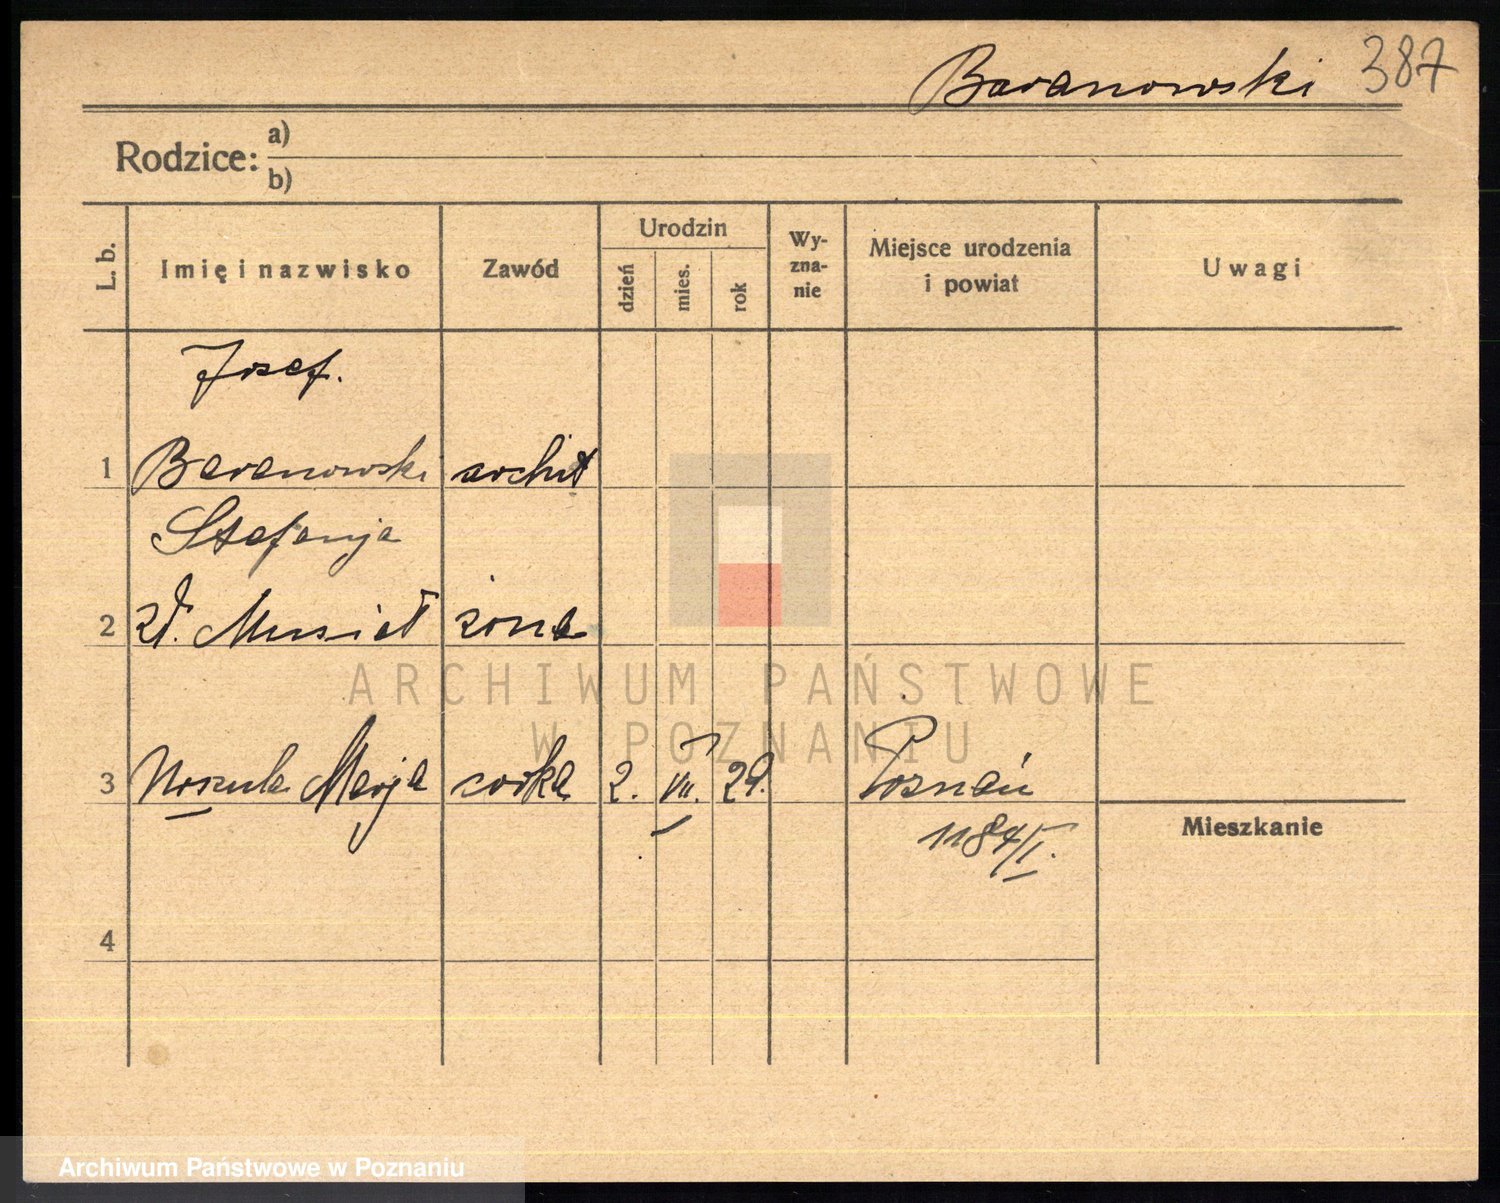 Baranowski 387
Rodzice: a)
b)
L. b. Imię i nazwisko Zawód Urodzin dzień mies. rok Wy-
zna-
nie Miejsce urodzenia
i powiat Uwagi
Josef.
1 Baranowski archit
Stefanja
2 zd. Musiał żona
3 Urszula Marja corka 2. VII. 29. Poznań
1184/I.
Mieszkanie
4
ARCHIWUM PAŃSTWOWE
W POZNANIU
Archiwum Państwowe w Poznaniu